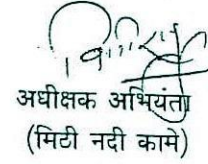 अधीक्षक अभियंता
(मिटी नदी कामे)